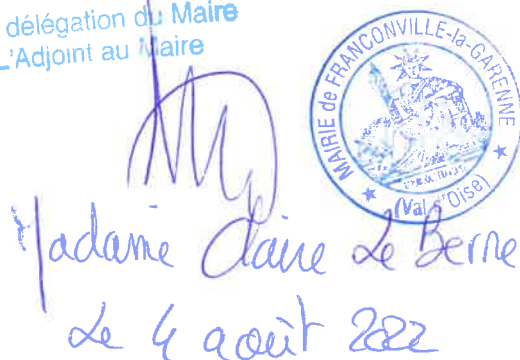 délégation du Maire
L'Adjoint au Maire
MAIRIE de FRANCONVILLE-la-GARENNE
(Val d'Oise)
Madame Claire Le Berre
Le 4 août 2022